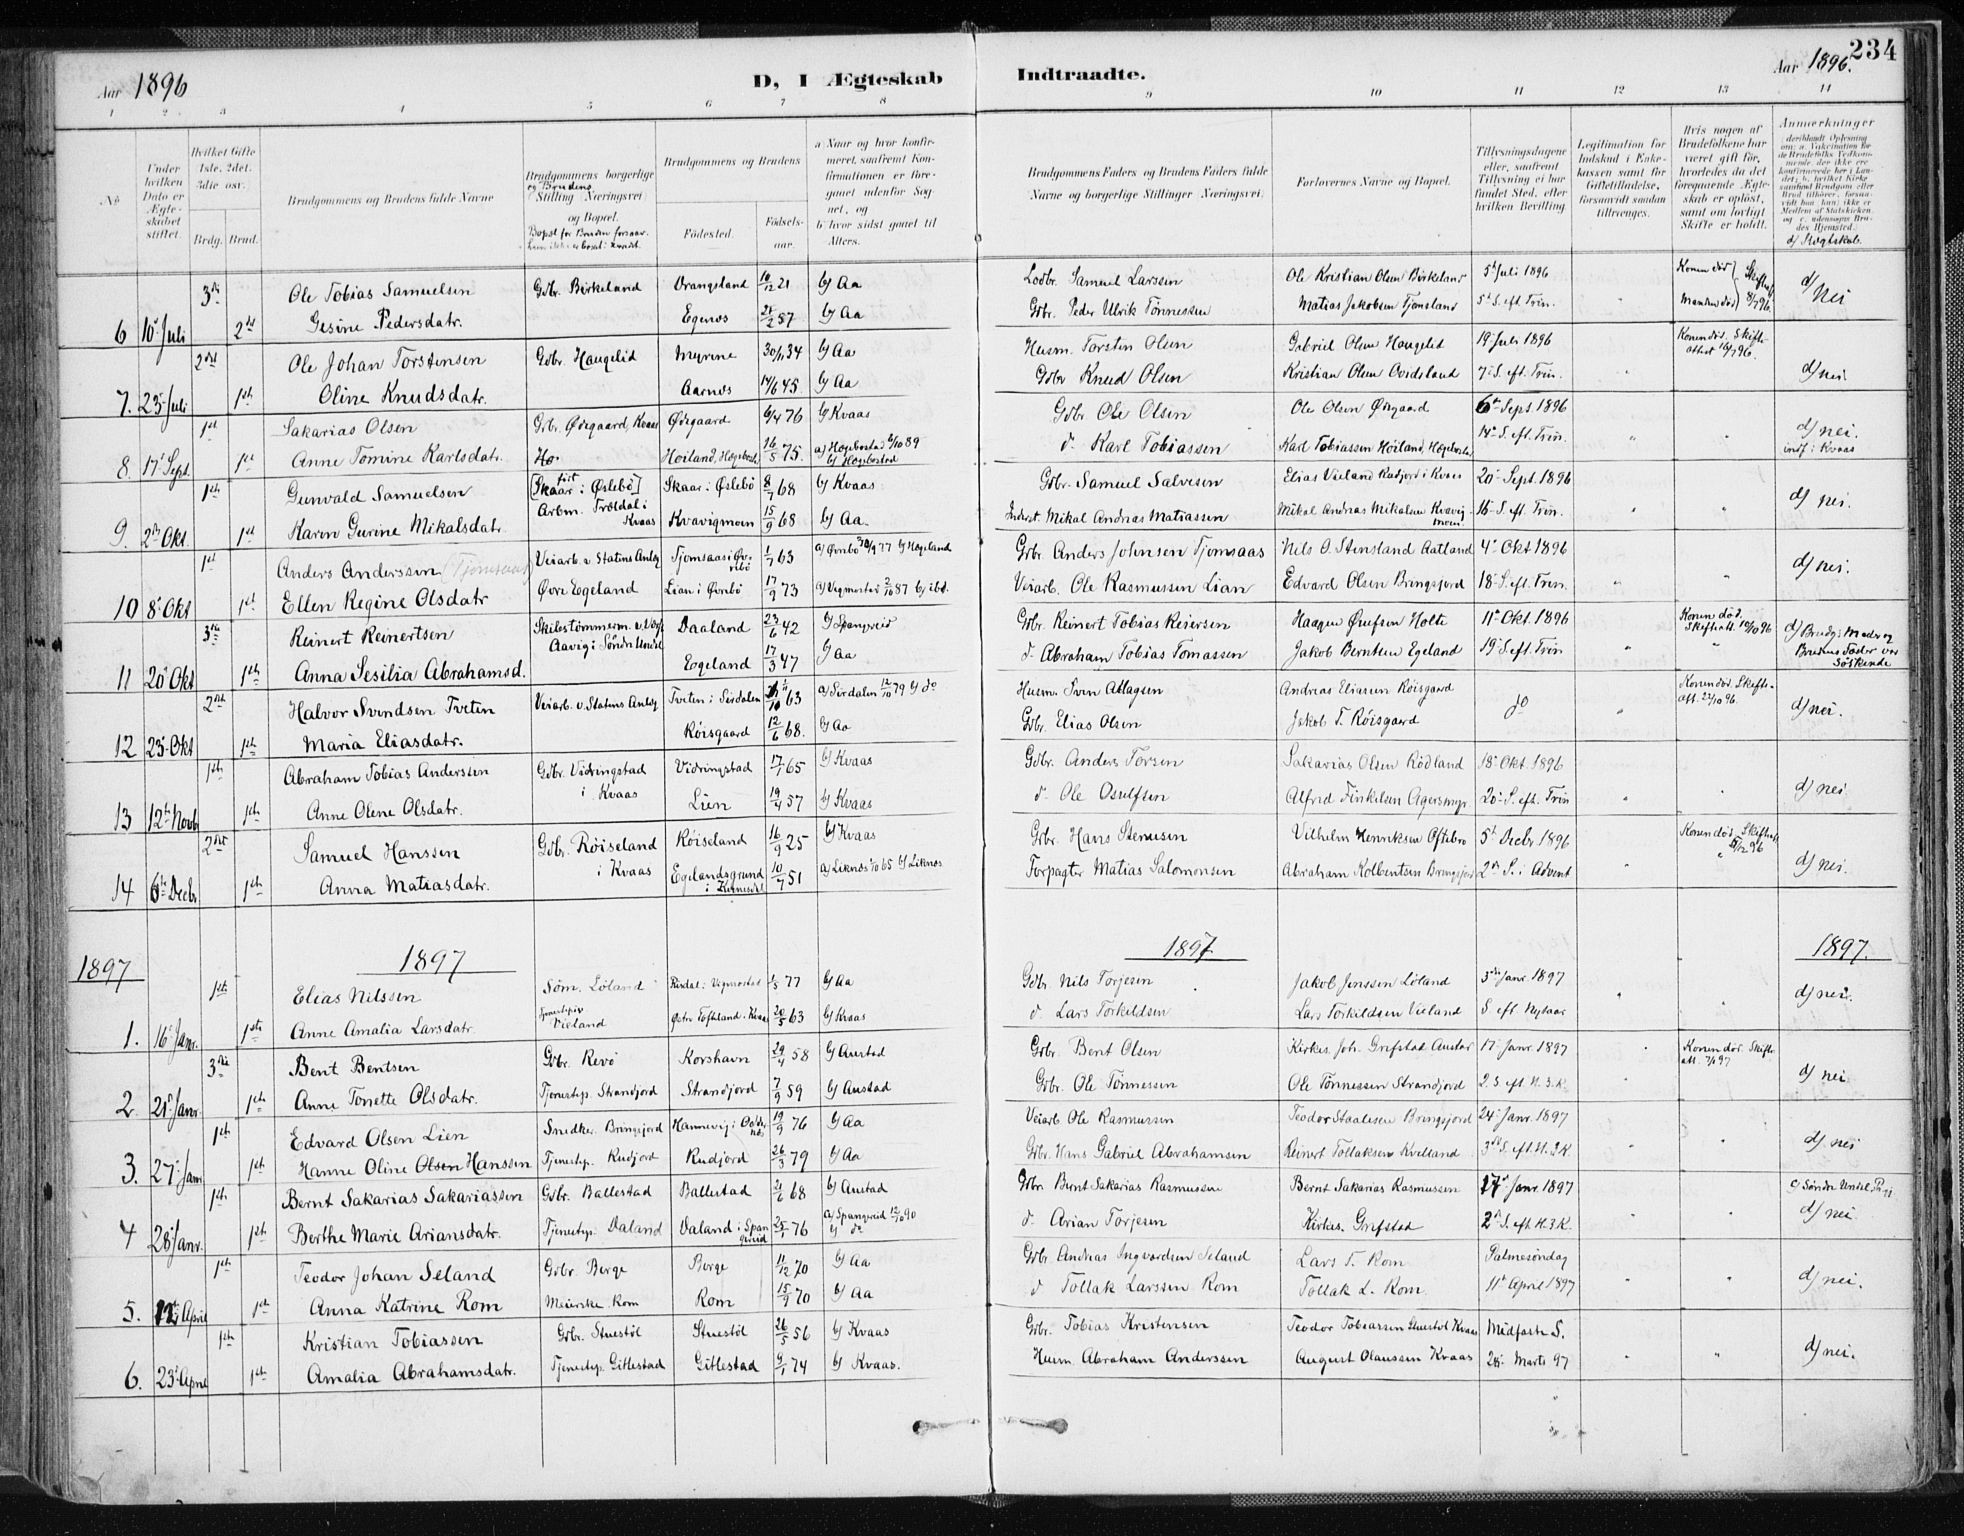 234
Aar 1896
D, I Ægteskab Indtraadte.
Aar 1896.
1 2 3 4 5 6 7 8 9 10 11 12 13 14
No
Under hvilken Dato er Ægteskabet stiftet.
Hvilket Gifte 1ste. 2det. 3die osv.
Brdg. Brud.
Brudgommens og Brudens fulde Navne
Brudgommens borgerlige og Brudens Stilling (Næringsvei) og Bopæl.
Brudgommens og Brudens
Fødested. Fødselsaar.
a Naar og hvor konfirmeret, saafremt Konfirmationen er foregaaet udenfor Sognet, og b hvor sidst gaaet til Alters.
Brudgommens Faders og Brudens Faders fulde Navne og borgerlige Stillinger Næringsvei
Forlovernes Navne og Bopæl.
Tillysningsdagene eller, saafremt Tillysning ei har fundet Sted, efter hvilken Bevilling
Legitimation for Indskud i Enkekassen samt for Giftetilladelse, forsaavidt saadan tiltrænges.
Hvis nogen af Brudefolkene har været gift før, hvorledes da det foregaaende Ægteskab er opløst, samt om lovligt Skifte er holdt.
Anmærkninger
d) Slegtskab.
3die Ole Tobias Samuelsen Gdbr. Birkeland Drangsland 10/12 21 b) Aa Lodbr. Samuel Larssen Ole Kristian Olsen Birkeland 5te Juli 1896 Konen død
6 10 Juli 2det Gesine Pedersdatr. Egenes b) Aa Gdbr. Peder Ulrik Tønnessen Matias Jakobsen Tjomsland 5te S. eft. Trin. Manden død d) Nei
2det Ole Johan Torstensen Gdbr. Haugelid Myrene b) Aa Husm. Torsten Olsen Gabriel Olsen Haugelid 19 Juli 1896 Konen død. Skifteattest
7. 23 Juli 1ste Oline Knudsdatr. Aarnes 14/6 45 b) Aa Gdbr Knud Olsen Kristian Olsen Ovidsland 7 S. eft. Trin. d) nei.
1ste Sakarias Olsen Gbr. Ødegaard, Kvaas Ødegaard 6/4 76 b) Kvaas Gdbr. Ole Olsen Ole Olsen Ødegaard 6te Sept. 1896
8. 17 Sept. 1ste Anne Tomine Karlsdatr. Høiland, Hægebost. 16/5 75. a) Hægebostad 6/10 89 b) Hægebostad d. Karl Tobiassen Karl Tobiassen Høiland, Hægebostad 14de S. eft. Trin. d) nei. indf. i Kvaas
1ste Gunvald Samuelsen Skaar i Øslebø Skaar i Øslebø 8/7 68 b) Kvaas Gdbr. Samuel Salvesen Elias Vieland 20 Sept. 1896
9. 2den Okt. 1ste Karen Gurine Mikalsdatr. Arbm. Trældal i Kvaas Kvavigmoen 15/9 68 b) Aa. Inderst. Mikal Andreas Matiassen Mikal Andreas Mikalsen Kvavigmoen. 16 S. eft. Trin. d) nei.
1ste Anders Anderssen (Tjomsaas) Veiarb. v. Statens Anlæg Tjomsaas i Øvrebø 1/7 63 a) Øvrebø 77 b) Hægeland Gbr. Anders Johnsen Tjomsaas Nils O. Stensland Aatland 4 Okt 1896
10 8 Okt 1ste Ellen Regine Olsdatr Øvre Egeland Lian i Øvrebø 17/9 73 a) Vegmostad 2/10 87 b) ibd. Veiarb. Ole Rasmussen Lian Edvard Olsen Bringsjord 18 S. eft. Trin. d) nei.
3die Reinert Reinertsen Daaland 23/6 42 b) Spangreid Gdbr. Reinert Tobias Reiersen Haagen Holte 11te Okt 1896 Konen død. Skifteatt. 10/10 96
11 20 Okt 1ste Anna Sesilia Abrahamsd. Egeland 17/3 47 b) Aa d. Abraham Tobias Tomassen Jakob Berntsen Egeland 19 S. eft. Trin d) Brudg. Moder og Brudens Fader var Søskende
2det Halvor Svendsen Tveten Veiarb. v. Statens Anlæg Tveten i Sirdalen 63 a) Sirdalen 12/10 79 b) do Husm. Sven Atlagsen Andreas Eliassen Røisgaard do Konen død. Skifteatt. 21/10 96.
12 23 Okt 1ste Maria Eliasdatr. Røisgaard 12/6 68. b) Aa Gdbr. Elias Olsen Jakob T. Røisgaard d) nei.
1ste Abraham Tobias Anderssen Gdbr. Vidringstad i Kvaas Vidringstad 17/1 65 b) Kvaas Gdbr. Anders Torsen Sakarias Olsen Rødland 18 Okt. 1896
13 12te Novb 1ste Anne Olene Olsdatr. Lien 19/4 57 b) Kvaas d. Ole Osulfsen Alfred Finkelsen Agersmyr 20 S. eft. Trin d) nei
2det Samuel Hanssen Gdbr. Røiseland i Kvaas Røiseland 16/9 25 b) Kvaas Gdbr. Hans Stenesen Vilhelm Henriksen Oftebro 5te Decbr 1896 Konen død. Skifteatt. 5/12 96
14 6te Decbr 1ste Anna Matiasdatr. Egelandsgrund 10/7 51 a) Liknes 65 b) Liknes Forpagter Matias Salomonsen Abraham Kolbentsen Bringsjord 2den S. i Advent d) nei.
1897 1897 1897 1897.
1ste Elias Nilssen Søm. Løland Vegmostad 1/5 77 b) Aa Gdbr. Nils Torjesen Jakob Jenssen Løland 3die Janr. 1897
1. 16 Janr. 1ste Anne Amalia Larsdatr. Tjenestepige Vieland Østre Tofteland. Kvaas 20/5 63 b) Kvaas d. Lars Torkildsen Lars Torkildsen Vieland S eft. Nytaar d) nei.
3die Bent Bentsen Gdbr. Revø Korshavn 29/4 58 b) Austad Gdbr. Bent Olsen Kirkes. Joh. Grefstad Austad 17 Janr. 1897 Konen død. Skifteatt. 7/1 97
2. 21 Janr. 1ste Anne Tonette Olsdatr. Tjenestep. Strandjord Strandjord 7/9 59 b) Austad Gdbr. Ole Tønnessen Ole Tønnessen Strandjord 2. S eft H. 3. K. d) nei
1ste Edvard Olsen Lien Snedker. Bringsjord Hannevig i Oddernes 19/9 76 b) Aa Veiarb. Ole Rasmussen Teodor Staalesen Bringsjord 24 Janr. 1897
3. 27 Janr 1ste Hanne Oline Olsen Hanssen Tjenestep. Rudjord Rudjord 26/3 79 b) Aa Gdbr. Hans Gabriel Abrahamsen Reinert Tollaksen Kvelland 3die S. eft. H. 3 K. d) nei
1ste Bernt Sakarias Sakariassen Gdbr. Ballestad Ballestad 68 b) Austad Gdbr. Bernt Sakarias Rasmussen Bernt Sakarias Rasmussen 17de Janr. 1897 c) Søndre Undal
4 28 Janr. 1ste Berthe Marie Ariansdatr. Tjenestep. Daland Valand i Spangereid 25/1 76 a) Spangereid 12/10 90 b) do d. Arian Torjesen Kirkes. Grefstad 2den S. eft. H. 3 K. d) nei.
1ste Teodor Johan Seland Gdbr. Berge Berge 11/12 70 b) Aa Gdbr. Andreas Ingvardsen Seland Lars T. Rom Palmesøndag
5. April 1ste Anna Katrine Rom Meierske Rom Rom 15/9 70 b) Aa d Tollak Larssen Rom Tollak L. Rom. 11te April 1897 d) nei.
1ste Kristian Tobiassen Gdbr. Stuestøl Stuestøl 26/5 56 b) Kvaas Gdbr. Tobias Kristensen Teodor Tobiassen Stuestøl Kvaas Midfaste S.
6. 23 April 1ste Amalia Abrahamsdatr. Tjenestep. Gitlestad Gitlestad 9/1 74 b) Kvaas. Husm. Abraham Anderssen August Olaussen Kvaas 28 Marts 97 d) nei.